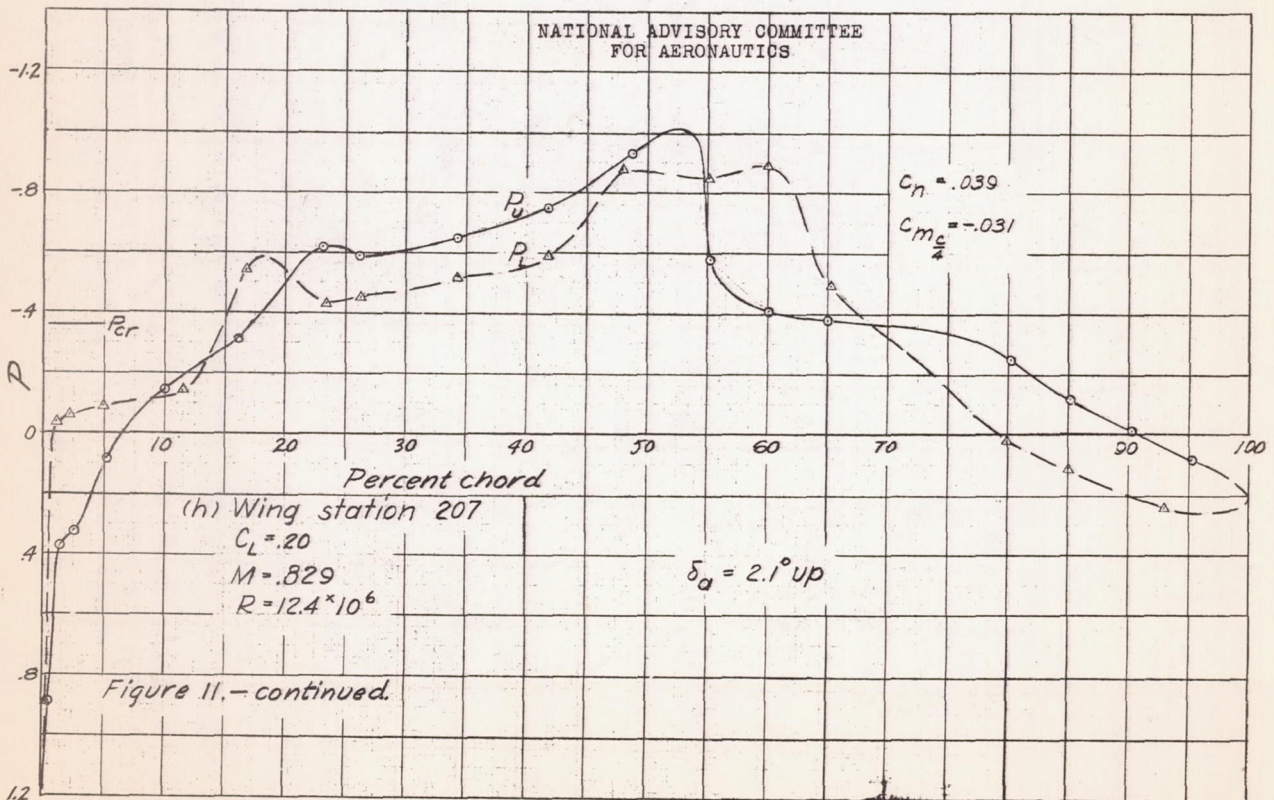 NATIONAL ADVISORY COMMITTEE
FOR AERONAUTICS
-1.2
-.8
-.4
0
.4
.8
1.2
P
Pcr
Pu
PL
cn = .039
cm c/4 = -.031
10
20
30
40
50
60
70
90
100
Percent chord
(h) Wing station 207
CL = .20
M = .829
R = 12.4 × 10^6
δa = 2.1° up
Figure 11.- continued.